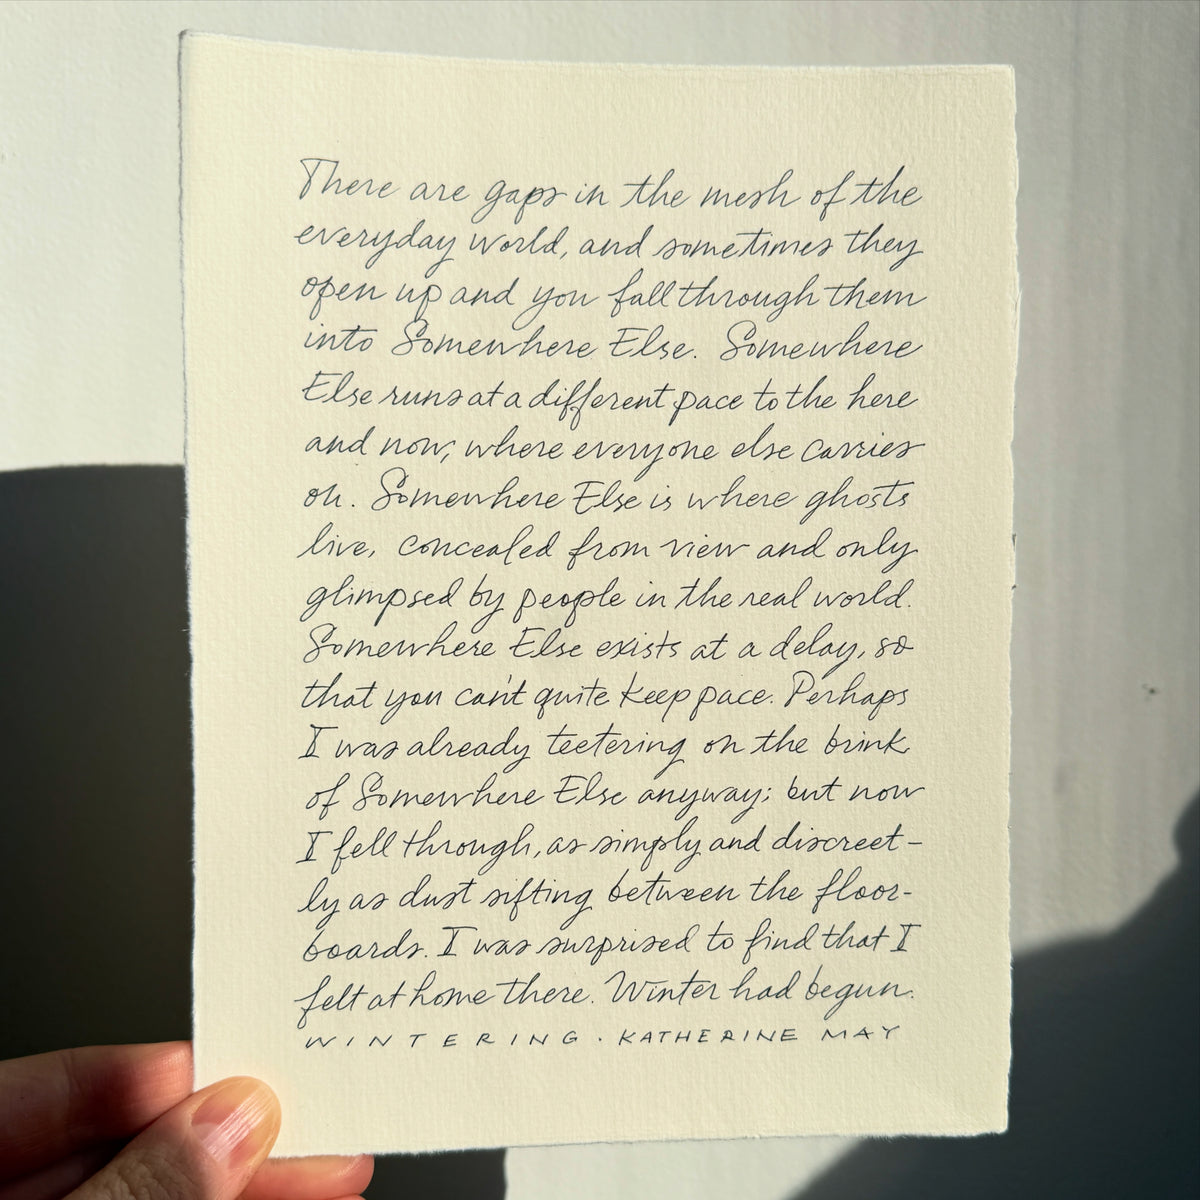 There are gaps in the mesh of the
everyday world, and sometimes they
open up and you fall through them
into Somewhere Else. Somewhere
Else runs at a different pace to the here
and now, where everyone else carries
on. Somewhere Else is where ghosts
live, concealed from view and only
glimpsed by people in the real world.
Somewhere Else exists at a delay, so
that you can't quite keep pace. Perhaps
I was already teetering on the brink
of Somewhere Else anyway; but now
I fell through, as simply and discreet-
ly as dust sifting between the floor-
boards. I was surprised to find that I
felt at home there. Winter had begun.
WINTERING · KATHERINE MAY